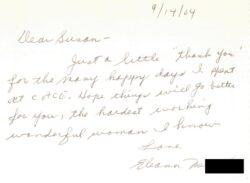 9/14/04
Dear Susan-
Just a little "thank you"
for the many happy days I spent
at CACE. Hope things will go better
for you, the hardest working
wonderful woman I know
Love
Eleanor